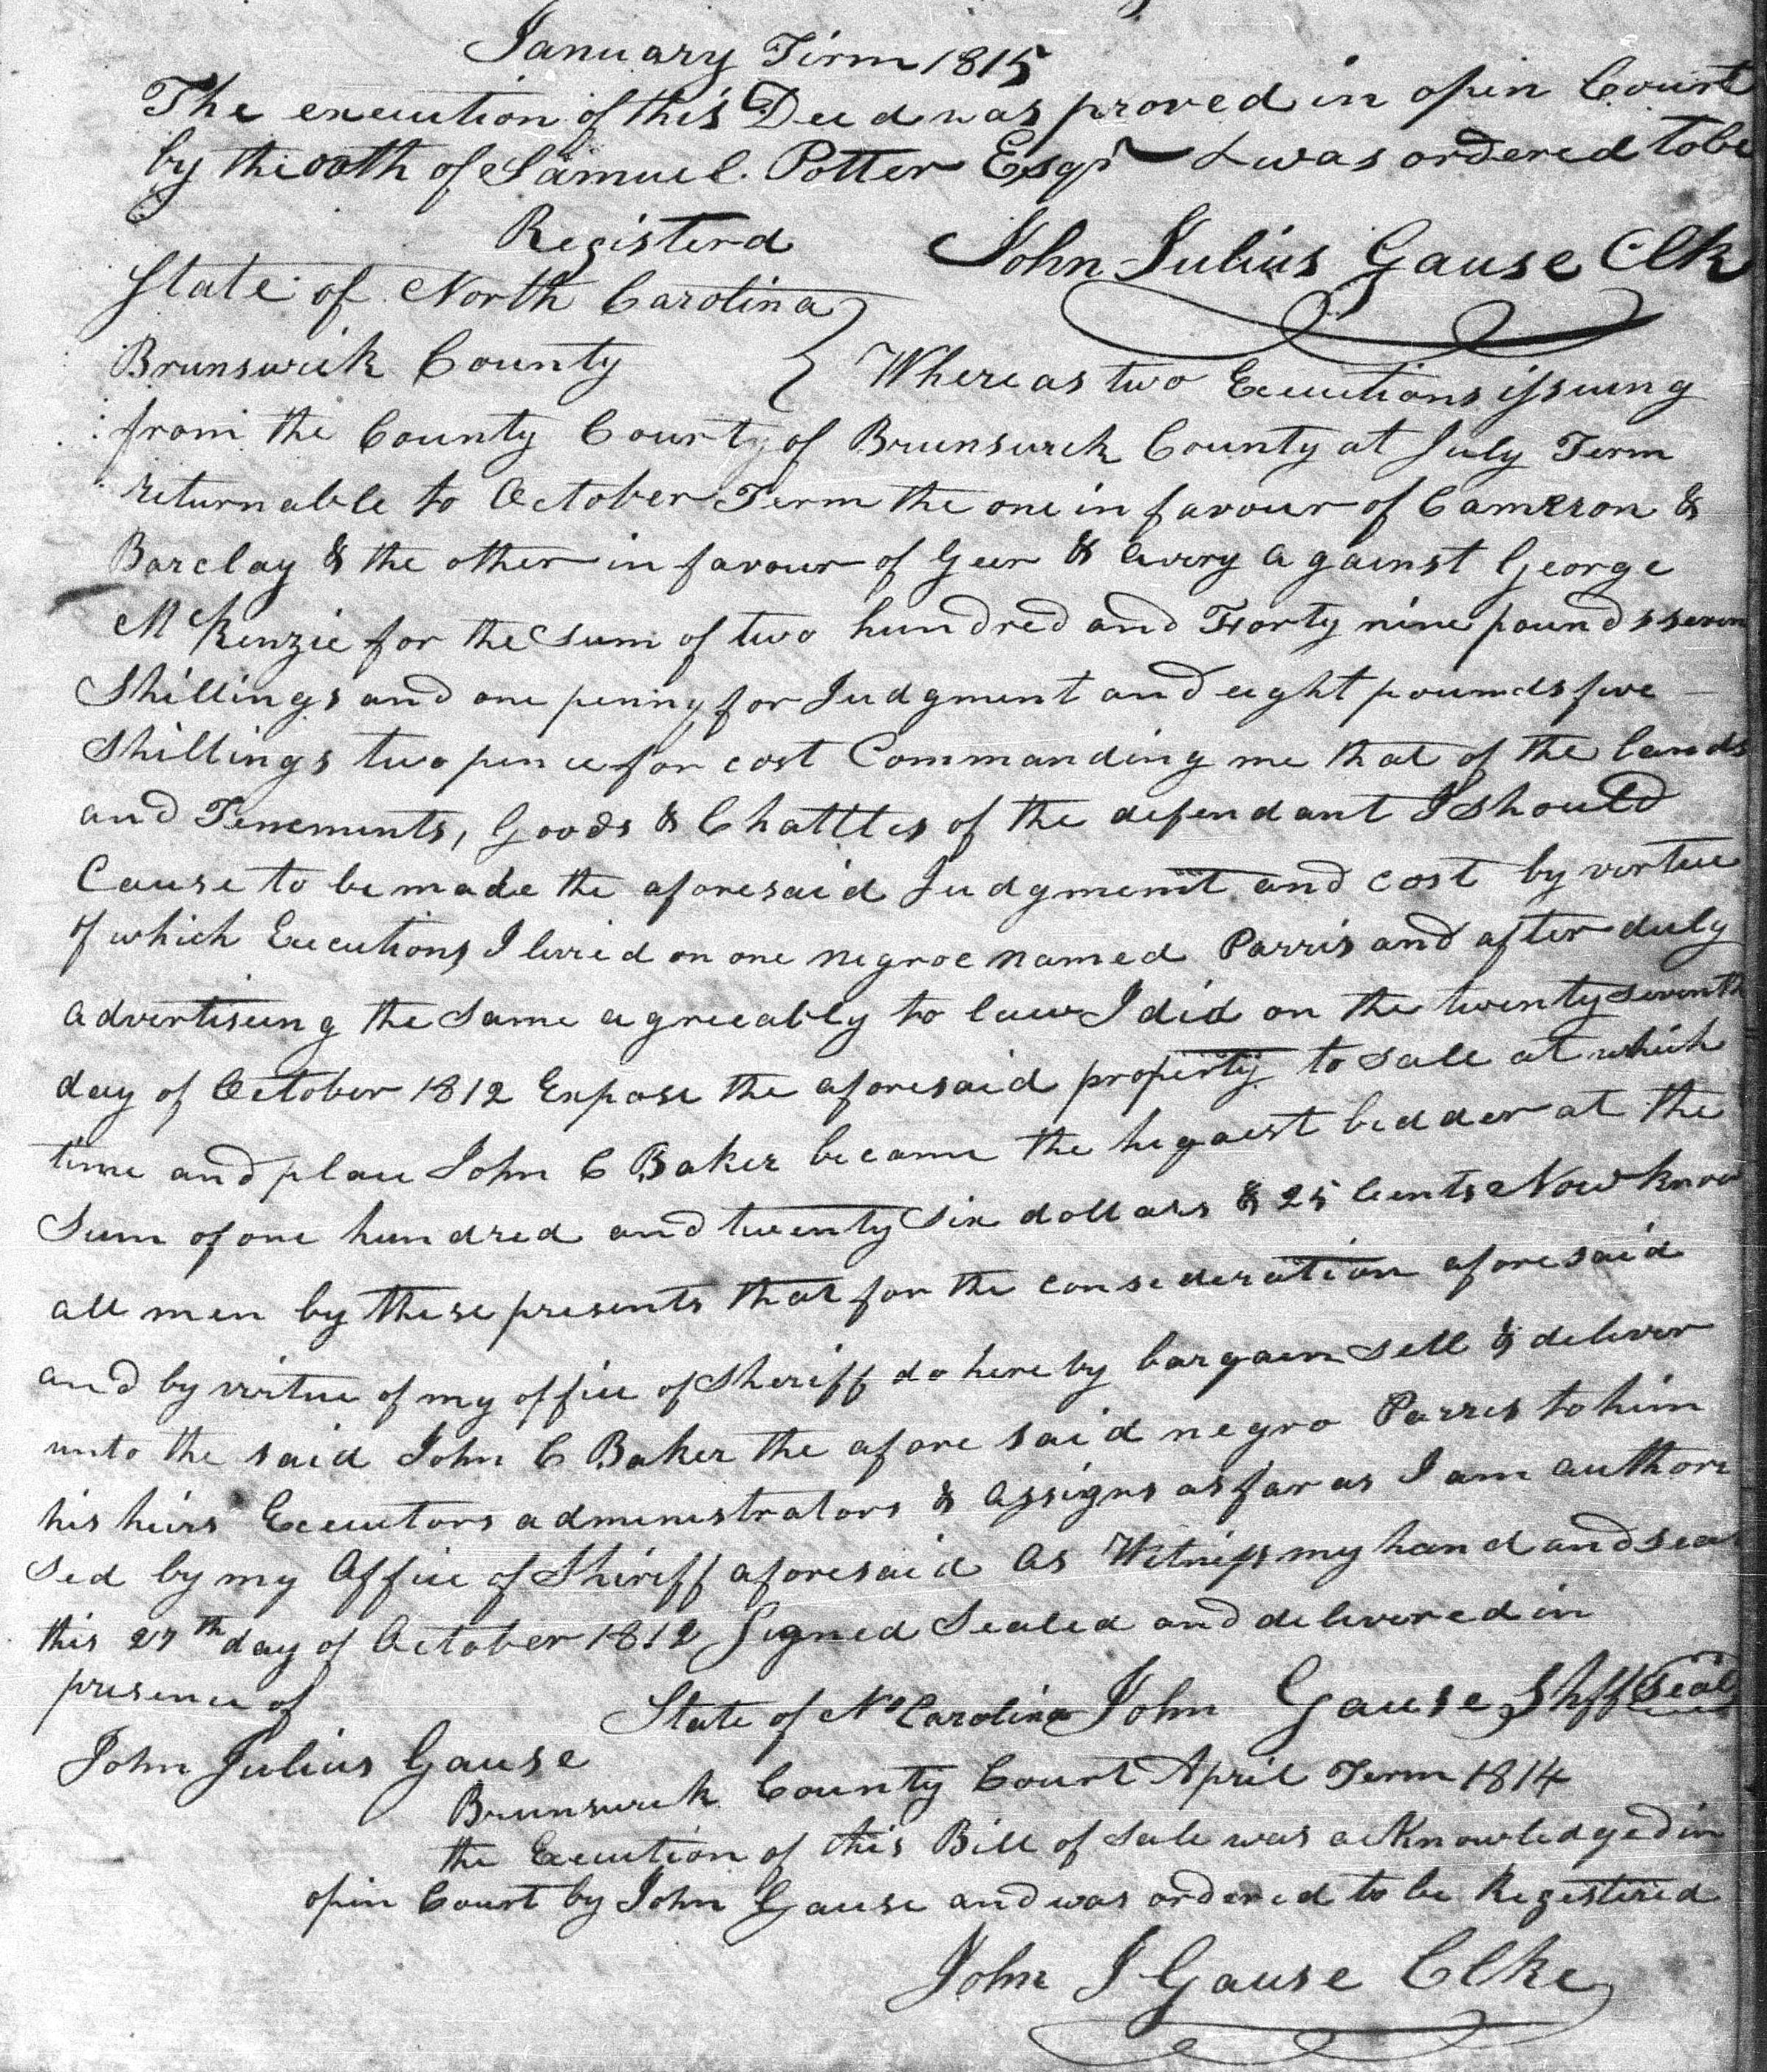 January Term 1815
The execution of this Deed was proved in open Court
by the oath of Samuel Potter Esqr & was ordered to be
Registerd John Julius Gause Clk
State of North Carolina
Brunswick County Whereas two Executions issuing
from the County Court of Brunswick County at July Term
returnable to October Term the one in favour of Cameron &
Barclay & the other in favour of Geer & Avery against George
McKenzie for the Sum of two hundred and Forty nine pounds seven
Shillings and one penny for Judgment and eight pounds five
Shillings two pence for cost Commanding me that of the lands
and Tenements, Goods & Chattles of the defendant I should
Cause to be made the aforesaid Judgment and cost by virtue
of which Executions I levied on one negroe named Parris and after duly
advertiseing the same agreeably to law I did on the twenty seventh
day of October 1812 Expose the aforesaid property to sale at which
time and place John C Baker became the higaest bedder at the
Sum of one hundred and twenty Six dollars & 25 Cents Now know
all men by these presents that for the consederation aforesaid
and by virtue of my office of Sheriff do hereby bargain sell & deliver
unto the said John C Baker the afore said negro Parris to him
his heirs Executors administrators & assigns as far as I am authori
sed by my Office of Sheriff aforesaid As Witness my hand and seal
this 27th day of October 1812 Signed Sealed and delivered in
presence of
State of No Carolina John Gause Shff Seal
John Julius Gause
Brunswick County Court April Term 1814
the Execution of this Bill of Sale was acknowledged in
open Court by John Gause and was ordered to be Registered
John J Gause Clke